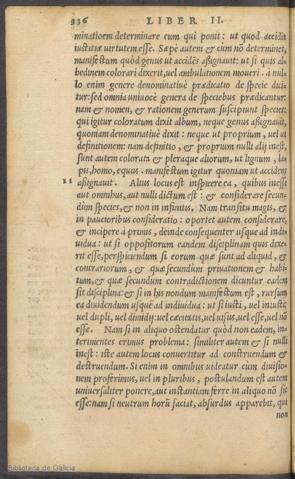 336 LIBER II.
minatioem determinare eum qui ponit: ut quod accidit
iustitiæ virtutem esse. Sæpè autem & cùm nō determinet,
manifestum quòd genus ut accidēs aßignauit: ut si quis al
bedinem colorari dixerit, uel ambulationem moueri. à nul
lo enim genere denominatiuè prædicatio de specie dici
tur: sed omnia uniuocè genera de speciebus prædicantur:
nam & nomen, & rationem generum suscipiunt species.
qui igitur coloratum dixit album, neque genus aßignauit,
quoniam denominatiuè dixit: neque ut proprium, uel ut
definitionem: nam definitio, & proprium nulli alij inest,
sunt autem colorata & pleraque aliorum, ut lignum, la
pis, homo, equus. manifestum igitur quoniam ut accidens
11 aßignauit. Alius locus est inspicere ea, quibus inesse
aut omnibus, aut nulli dictum est: & considerare secun-
dum species, & non in infinitis. Nam transitu magis, &
in paucioribus consideratio: oportet autem considerare,
& incipere à primis, deinde consequenter usque ad indi-
uidua: ut si oppositorum eandem disciplinam quis dixe-
rit esse, perspiciendum si eorum quæ sunt ad aliquid, &
contrariorum, & quæ secundum priuationem & habi-
tum, & quæ secundum contradictionem dicuntur eadem
sit disciplina: & si in his nondum manifestum est, rursum
ea diuidendum usque ad indiuidua: ut si iusti, uel iniusti:
uel dupli, uel dimidij: uel cæcitatis, uel uisus, uel esse, uel nō
esse. Nam si in aliquo ostendatur quòd non eadem, in-
terimentes erimus problema: similiter autem & si nulli
inest: iste autem locus conuertitur ad construendum &
destruendum. Si enim in omnibus uideatur cùm diuisio-
nem proferimus, uel in pluribus, postulandum est autem
uniuersaliter ponere, aut instantiam ferre in aliquo nō sic
esse: nam si neutrum horū faciat, absurdus apparebit, qui
non
Biblioteca de Galicia